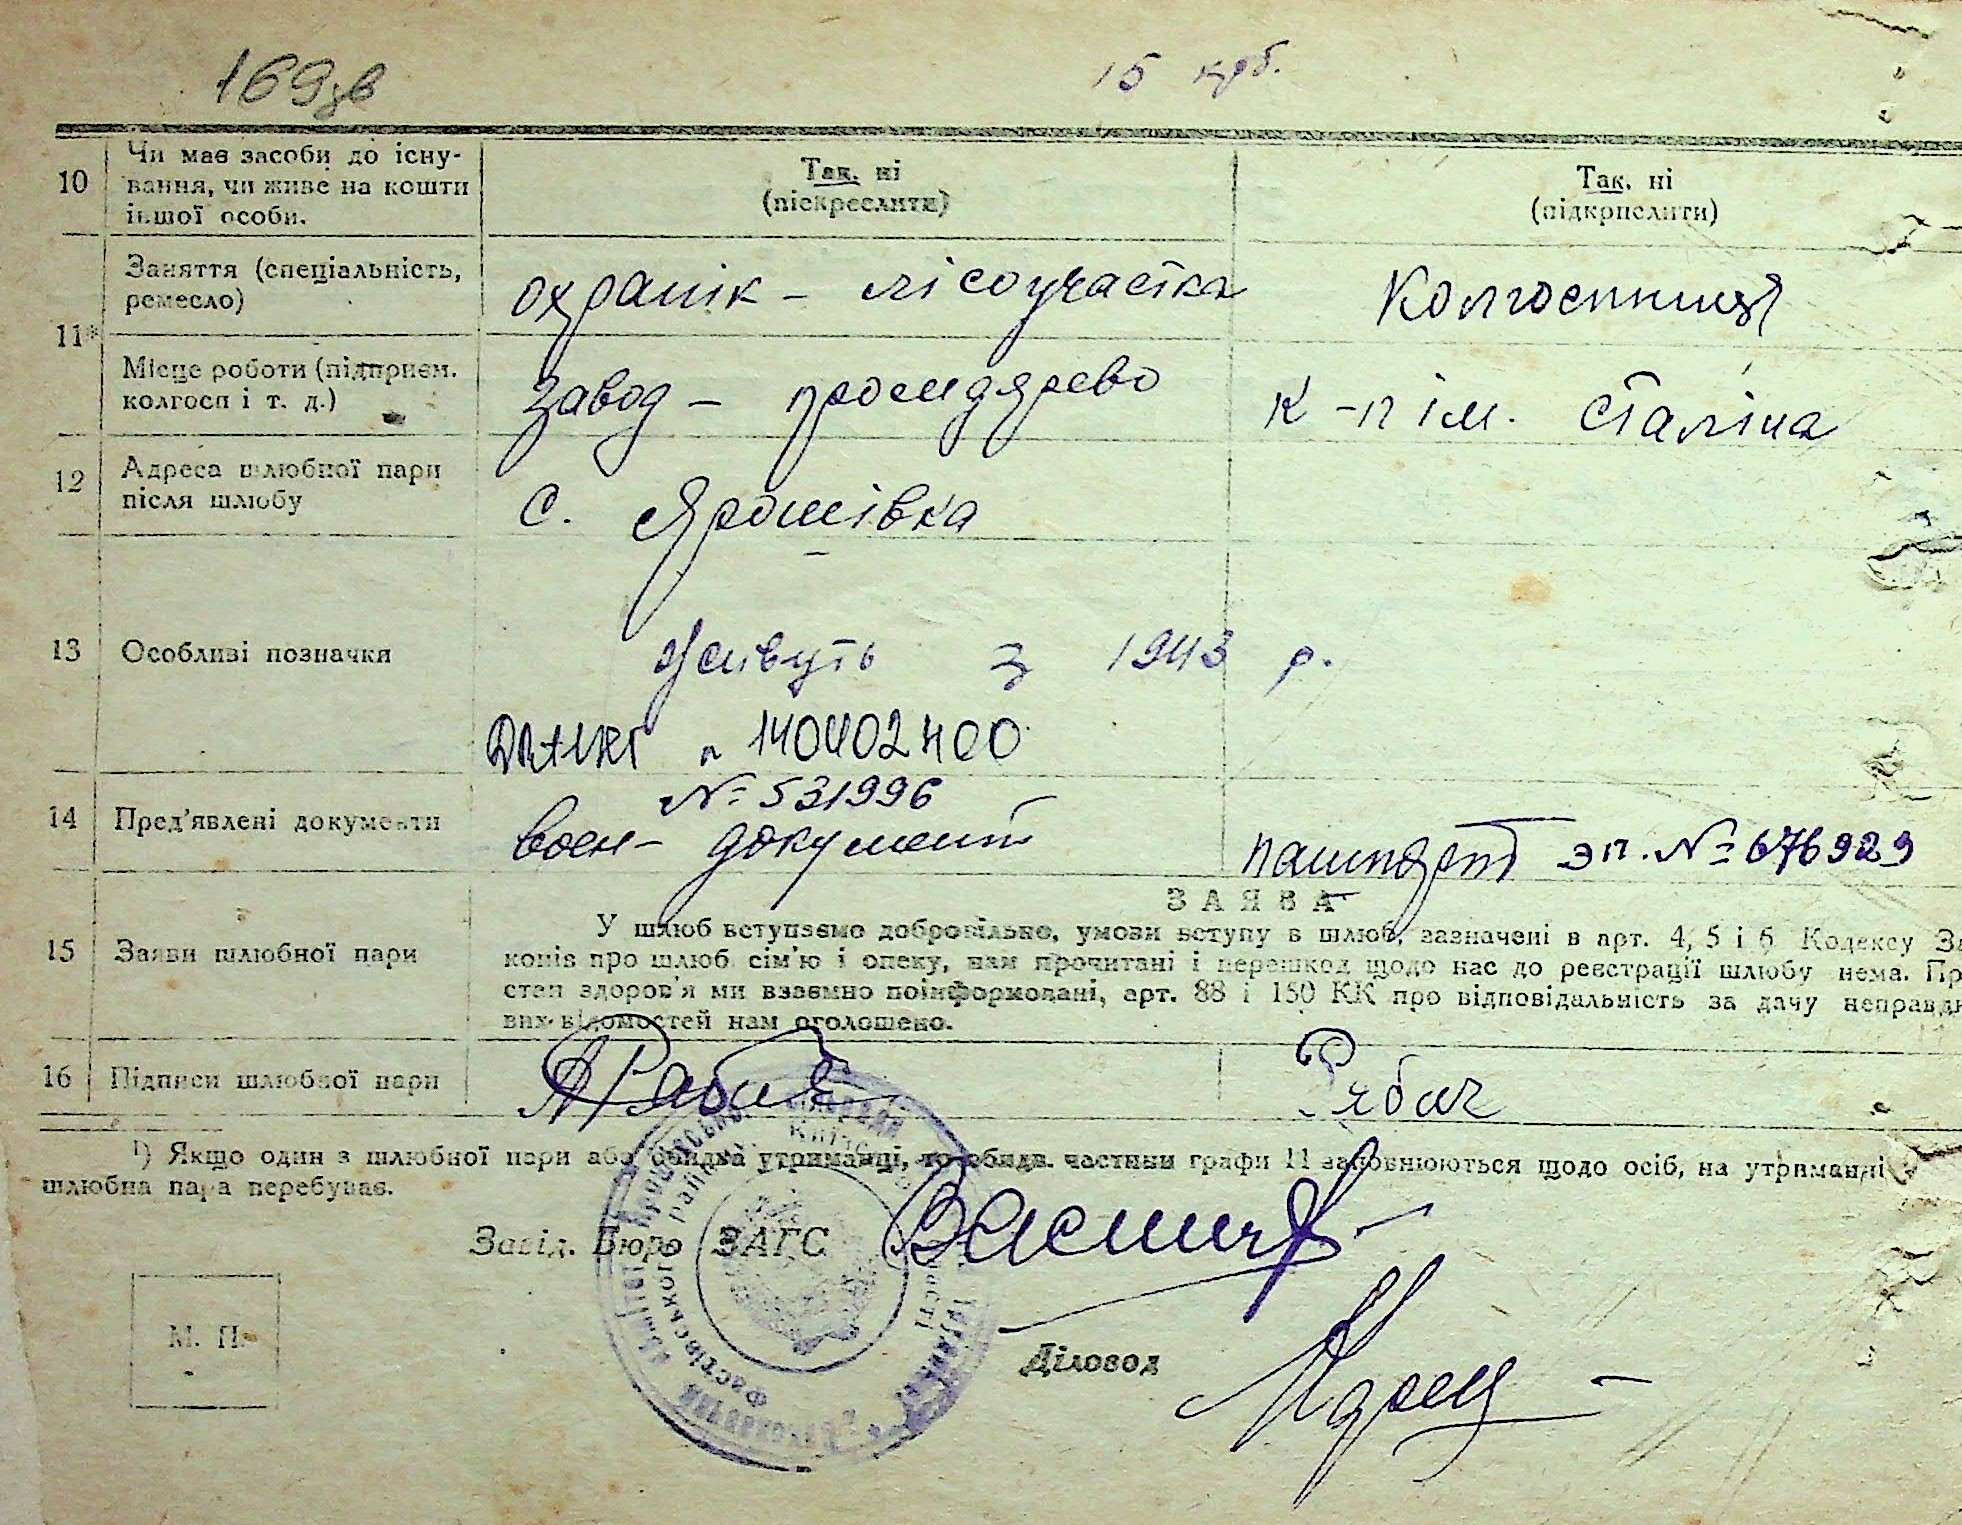 169зв
15 крб.
10 Чи має засоби до існу-
вання, чи живе на кошти
іншої особи.
Так, ні
(підкреслити)
Так, ні
(підкрпслити)
11*
Заняття (спеціальність,
ремесло)
охранік - лісоучастка
Колгоспниця
Місце роботи (підприєм.
колгосп і т. д.)
завод - промдярево
к-п ім. Сталіна
12 Адреса шлюбної пари
після шлюбу
с. Ярошівка
13 Особливі позначки
Живуть з 1943 р.
140402400
14 Пред'явлені документи
№ 531996
воєн- документ
пашпорт № 676929
ЗАЯВА
15 Заяви шлюбної пари
У шлюб вступаємо добровільно, умови вступу в шлюб, зазначені в арт. 4, 5 і 6 Кодексу За
конів про шлюб сім'ю і опеку, нам прочитані і перешкод щодо нас до реєстрації шлюбу нема. Пр
стан здоров'я ми взаємно поінформовані, арт. 88 і 150 КК про відповідальність за дачу неправд
вих відомостей нам оголошено.
16 Підписи шлюбної пари
Рябич
¹) Якщо один з шлюбної пари або обидва утриманці, то обидв. частини графи 11 заповнюються щодо осіб, на утриманні
шлюбна пара перебуває.
Завід. Бюро ЗАГС
М. П.
Діловод
Фастівського району